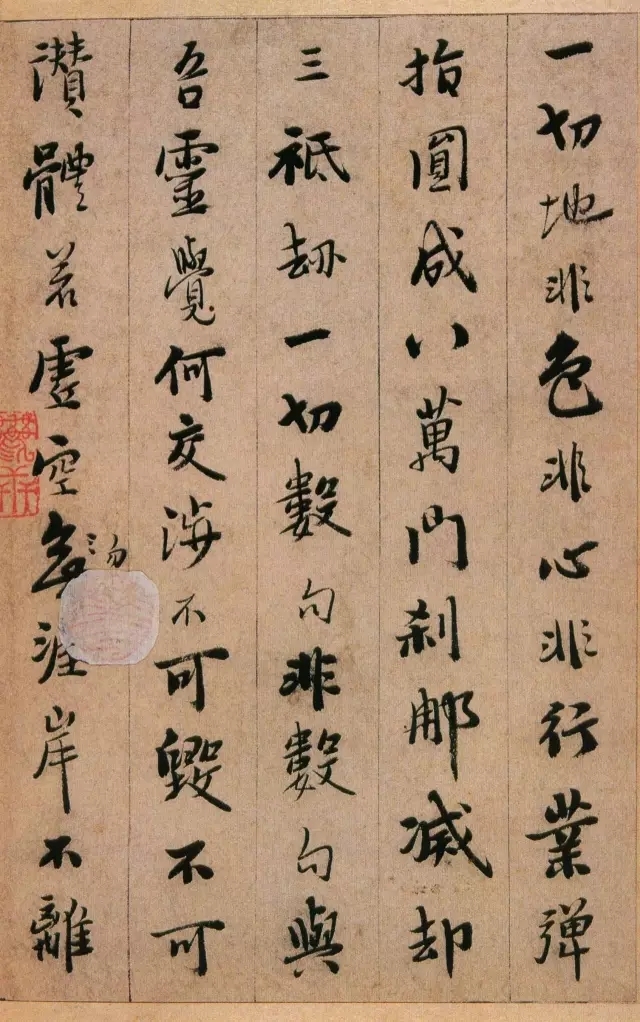 一切地非色非心非行業彈
指圓成八萬門刹那滅却
三祇劫一切數句非數句與
吾靈覺何交涉不可毀不可
讚體若虛空無涯岸不離